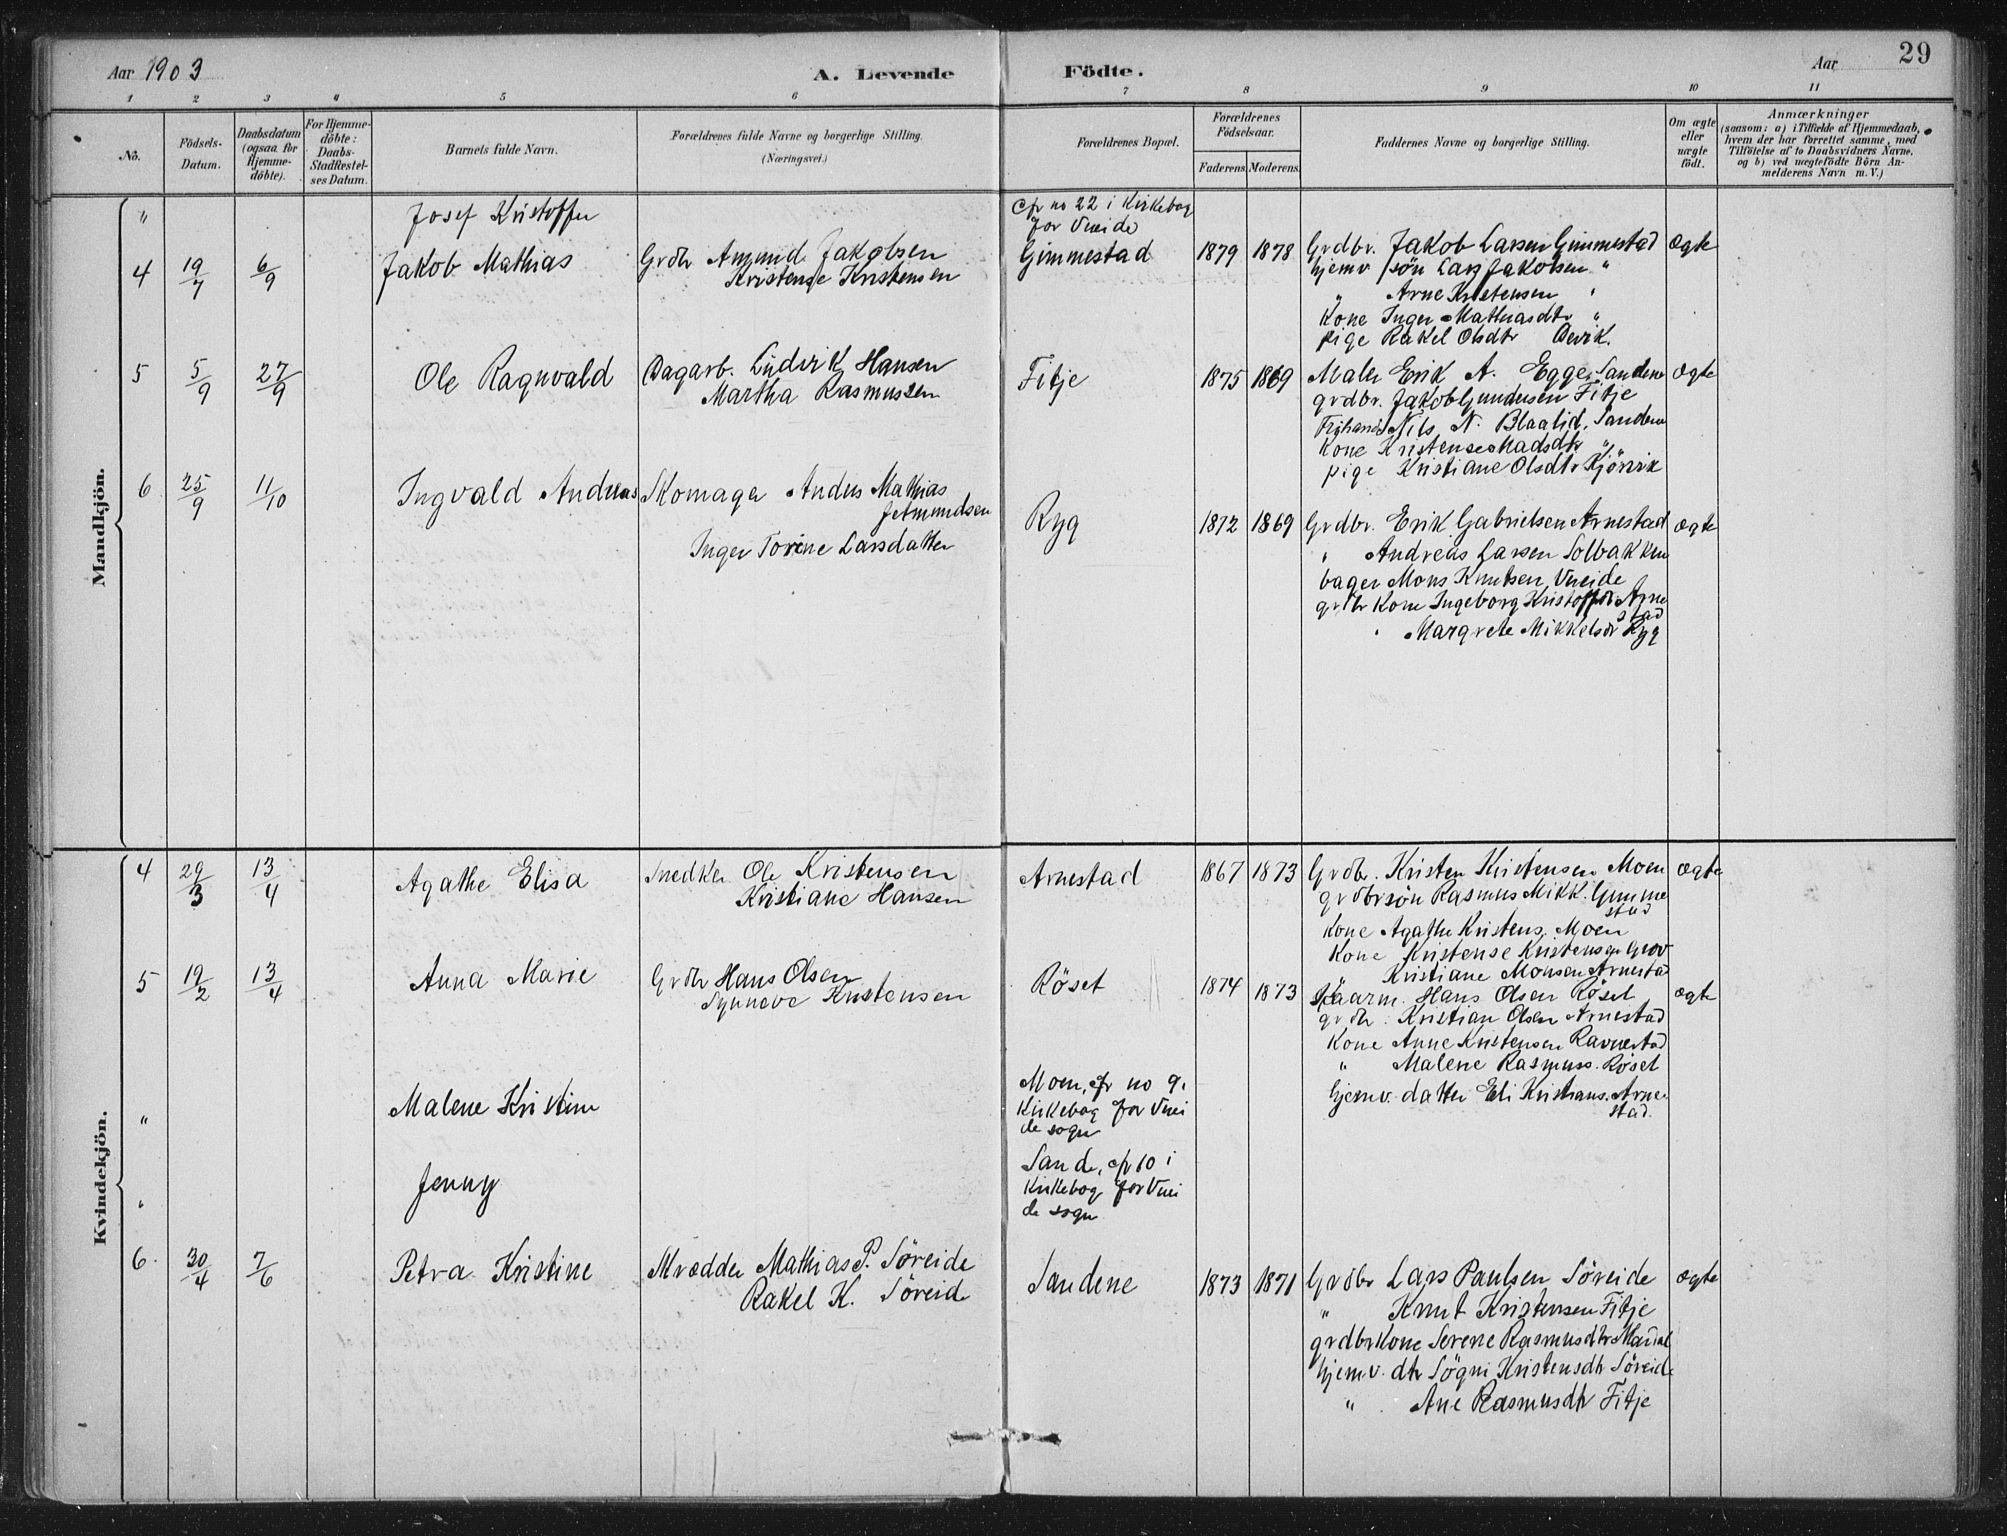 Aar 1903
A. Levende
Födte.
Aar
29
1 2 3 4 5 6 7 8 9 10 11
No.
Födsels-
Datum.
Daabsdatum
(ogsaa for
Hjemme-
döbte).
For Hjemme-
döbte:
Daabs-
Stadfæstel-
ses Datum.
Barnets fulde Navn.
Forældrenes fulde Navne og borgerlige Stilling.
(Næringsvei.)
Forældrenes Bopæl.
Forældrenes
Födselsaar.
Faderens.
Moderens.
Faddernes Navne og borgerlige Stilling.
Om ægte
eller
uægte
födt.
Anmærkninger
(saasom: a) i Tilfælde af Hjemmedaab,
hvem der har forrettet samme, med
Tilföielse af to Daabsvidners Navne.
og b) ved uægtefödte Börn An-
melderens Navn m. V.)
Mandkjön.
" Josef Kristoffer
cfr no 22 i Kirkebog
for Vereide
4 19/7 6/9 Jakob Mathias
Grdbr Ammund Jakobsen
Kristense Kristensen
Gimmestad 1879 1878
Grdbr. Jakob Larsen Gimmestad ægte
hjemv. søn Lars Jakobsen "
" Arne Kristensen "
Kone Inger Mathiasdtr "
pige Rakel Olsdtr
5 5/9 27/9 Ole Ragnvald
Dagarb. Ludvik Hansen
Martha Rasmussen
Fitje 1875 1869
Maler Erik A. Egge, Sandene ægte
grdbr. Jakob Gundersen Fitje
Nils N. Blaalid, Sandene
Kone Kristense Madsdtr "
pige Kristiane Olsdtr Kjörvik
6 25/9 11/10 Ingvald Andreas
Skomager Anders Mathias
Jetmundsen
Inger Torine Larsdatter
Ryg 1872 1869
Grdbr. Erik Gabrielsen Arnestad ægte
" Andreas Larsen Solbakken
bager Mons Knutsen Vereide
grdbr Kone Ingeborg Kristoffdr Arne
stad
" Margrete Mikkelsdr Ryg
Kvindekjön.
4 29/3 13/4 Agathe Elisa
Snedker Ole Kristensen
Kristiane Hansen
Arnestad 1867 1873
Grdbr. Kristen Kristensen Moen ægte
grdbrsön Rasmus Mikk. Gimme
stad
Kone Agathe Kristens. Moen
Kone Kristense Kristensen Grov
" Kristiane Monsen Arnestad
5 19/2 13/4 Anna Marie
Grdbr Hans Olsen
Synneve Kristensen
Röset 1874 1873
Kaarm. Hans Olsen Röset ægte
grdbr. Kristian Olsen Arnestad
Kone Anne Kristensen Ravnestad
" Malene Rasmuss. Röset
hjemv. datter Eli Kristians. Arne
stad.
" Malene Kristine
Moen, cfr no 9 i
Kirkebog for Verei
de sogn
" Jenny
Sande, cfr 10 i
Kirkebog for Verei
de sogn
6 30/4 7/6 Petra Kristine
Mathias P. Söreide
Rakel K. Söreide
Sandene 1873 1871
Grdbr Lars Paulsen Söreide ægte
" Knut Kristensen Fitje
grdbrkone Serene Rasmusdtr
hjemv. dtr Sögni Kristensdtr Söreide
" Ane Rasmusdtr Fitje